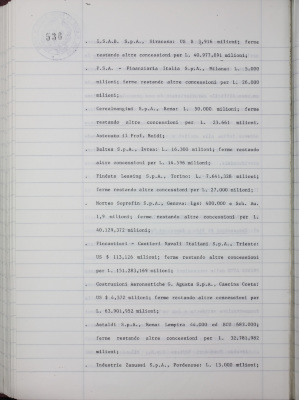 536
. I.S.A.B. S.p.A., Siracusa: US $ 3,916 milioni; ferme
restando altre concessioni per L. 40.977,891 milioni;
. F.S.A. - Finanziaria Italia S.p.A., Milano: L. 5.000
milioni; ferme restando altre concessioni per L. 26.000
milioni;
. S.p.A., Roma: L. 30.000 milioni; ferme
restando altre concessioni per L. 23.461 milioni.
Astenuto il Prof. Reidl;
. S.p.A., Ivrea: L. 16.305 milioni; ferme restando
altre concessioni per L. 14.596 milioni;
. Findata Leasing S.p.A., Torino: L. 7.641,326 milioni;
ferme restando altre concessioni per L. 27.000 milioni;
. S.p.A., Genova: Lgs. 600.000 e Sch. Au.
1,9 milioni; ferme restando altre concessioni per L.
40.129,372 milioni;
. Fincantieri - Cantieri Navali Italiani S.p.A., Trieste:
US $ 112,126 milioni; ferme restando altre concessioni
per L. 151.283,169 milioni;
. Costruzioni Aeronautiche G. Agusta S.p.A., Cascina Costa:
US $ 4,572 milioni; ferme restando altre concessioni per
L. 83.901,952 milioni;
. Astaldi S.p.A., Roma: 44.000 ed ECU 883.000;
ferme restando altre concessioni per L. 30.781,982
milioni;
. Industrie Zanussi S.p.A., Pordenone: L. 13.000 milioni;